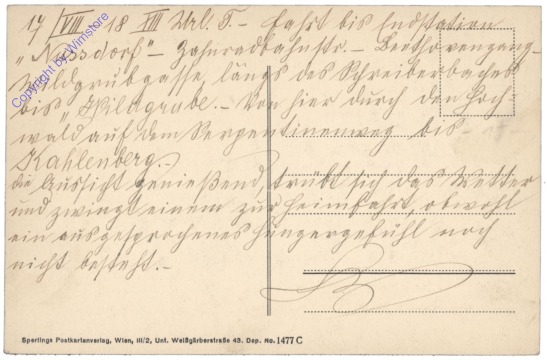 17/VIII 18 VIII Url. T. – Fahrt bis Endstation
„Nussdorf" – Zahnradbahnstr. – Beethovengang –
Wildgrubgasse, längs des Schreiberbaches
bis „Wildgrube. – Von hier durch den Hoch-
wald auf dem Serpentinenweg bis –
Kahlenberg. –
Die Aussicht genießend, trübt sich das Wetter
und zwingt einem zur Heimfahrt, obwohl
ein ausgesprochenes Hungergefühl noch
nicht besteht. –
Sperlings Postkartenverlag, Wien, III/2, Unt. Weißgärberstraße 43. Dep. No. 1477 C
Copyright by Wimstore